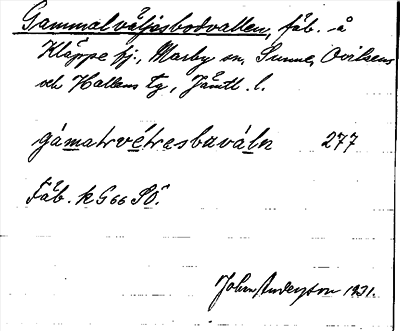 Gammalväljasbodvallen, fäb. å
Kläppe fj., Marby sn, Sunne, Ovikens
och Hallens tg, Jämtl. l.
gámatrvétresbaváln 277
Fäb. k G 66 SÖ.
Johan Anderson 1931.